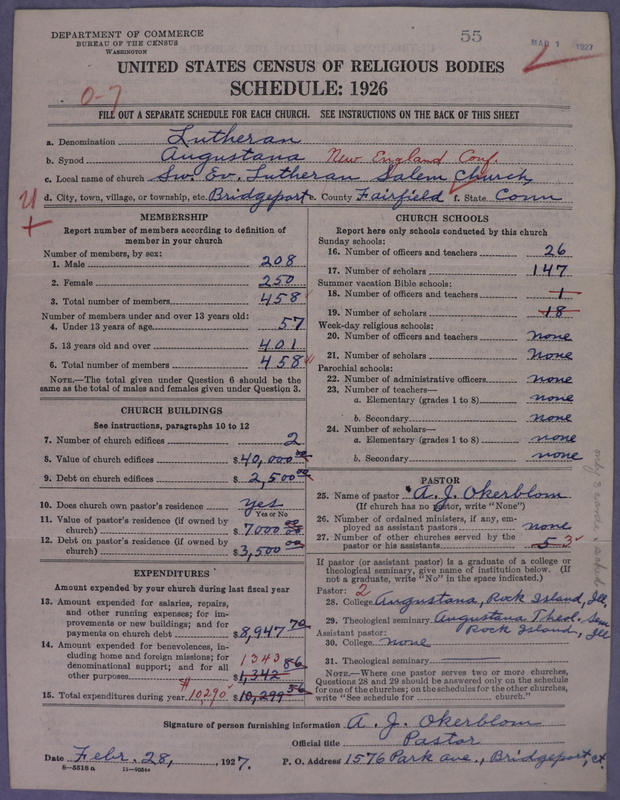 DEPARTMENT OF COMMERCE
BUREAU OF THE CENSUS
WASHINGTON
55
MAR 1 1927
UNITED STATES CENSUS OF RELIGIOUS BODIES
SCHEDULE: 1926
0-7
FILL OUT A SEPARATE SCHEDULE FOR EACH CHURCH. SEE INSTRUCTIONS ON THE BACK OF THIS SHEET
a. Denomination Lutheran
b. Synod Augustana New England Conf.
c. Local name of church Sw. Ev. Lutheran Salem Church
d. City, town, village, or township, etc. Bridgeport e. County Fairfield f. State Conn
MEMBERSHIP
Report number of members according to definition of
member in your church
Number of members, by sex:
1. Male 208
2. Female 250
3. Total number of members 458
Number of members under and over 13 years old:
4. Under 13 years of age 57
5. 13 years old and over 401
6. Total number of members 458
NOTE.—The total given under Question 6 should be the
same as the total of males and females given under Question 3.
CHURCH BUILDINGS
See instructions, paragraphs 10 to 12
7. Number of church edifices 2
8. Value of church edifices $ 40,000 00
9. Debt on church edifices $ 2,500 00
10. Does church own pastor's residence yes
Yes or No
11. Value of pastor's residence (if owned by
church) $ 7000 00
12. Debt on pastor's residence (if owned by
church) $ 3,500 00
EXPENDITURES
Amount expended by your church during last fiscal year
13. Amount expended for salaries, repairs,
and other running expenses; for im-
provements or new buildings; and for
payments on church debt $ 8,947 70
14. Amount expended for benevolences, in-
cluding home and foreign missions; for
denominational support; and for all 1343
other purposes $ 1,342 86
15. Total expenditures during year $ 10290 $ 10,299 56
CHURCH SCHOOLS
Report here only schools conducted by this church
Sunday schools:
16. Number of officers and teachers 26
17. Number of scholars 147
Summer vacation Bible schools:
18. Number of officers and teachers 1
19. Number of scholars 18
Week-day religious schools:
20. Number of officers and teachers none
21. Number of scholars none
Parochial schools:
22. Number of administrative officers none
23. Number of teachers—
a. Elementary (grades 1 to 8) none
b. Secondary none
24. Number of scholars—
a. Elementary (grades 1 to 8) none
b. Secondary none
PASTOR
25. Name of pastor A. J. Okerblom
(If church has no pastor, write "None")
26. Number of ordained ministers, if any, em-
ployed as assistant pastors none
27. Number of other churches served by the
pastor or his assistants 5 3
If pastor (or assistant pastor) is a graduate of a college or
theological seminary, give name of institution below. (If
not a graduate, write "No" in the space indicated.)
Pastor: 2
28. College Augustana, Rock Island, Ill.
29. Theological seminary Augustana Theol. Sem
Rock Island, Ill
Assistant pastor:
30. College none
31. Theological seminary
NOTE.—Where one pastor serves two or more churches,
Questions 28 and 29 should be answered only on the schedule
for one of the churches; on the schedules for the other churches,
write "See schedule for church."
only 3
Signature of person furnishing information A. J. Okerblom
Official title Pastor
Date Febr. 28, 1927. P. O. Address 1576 Park ave., Bridgeport, Ct.
8—5518 a